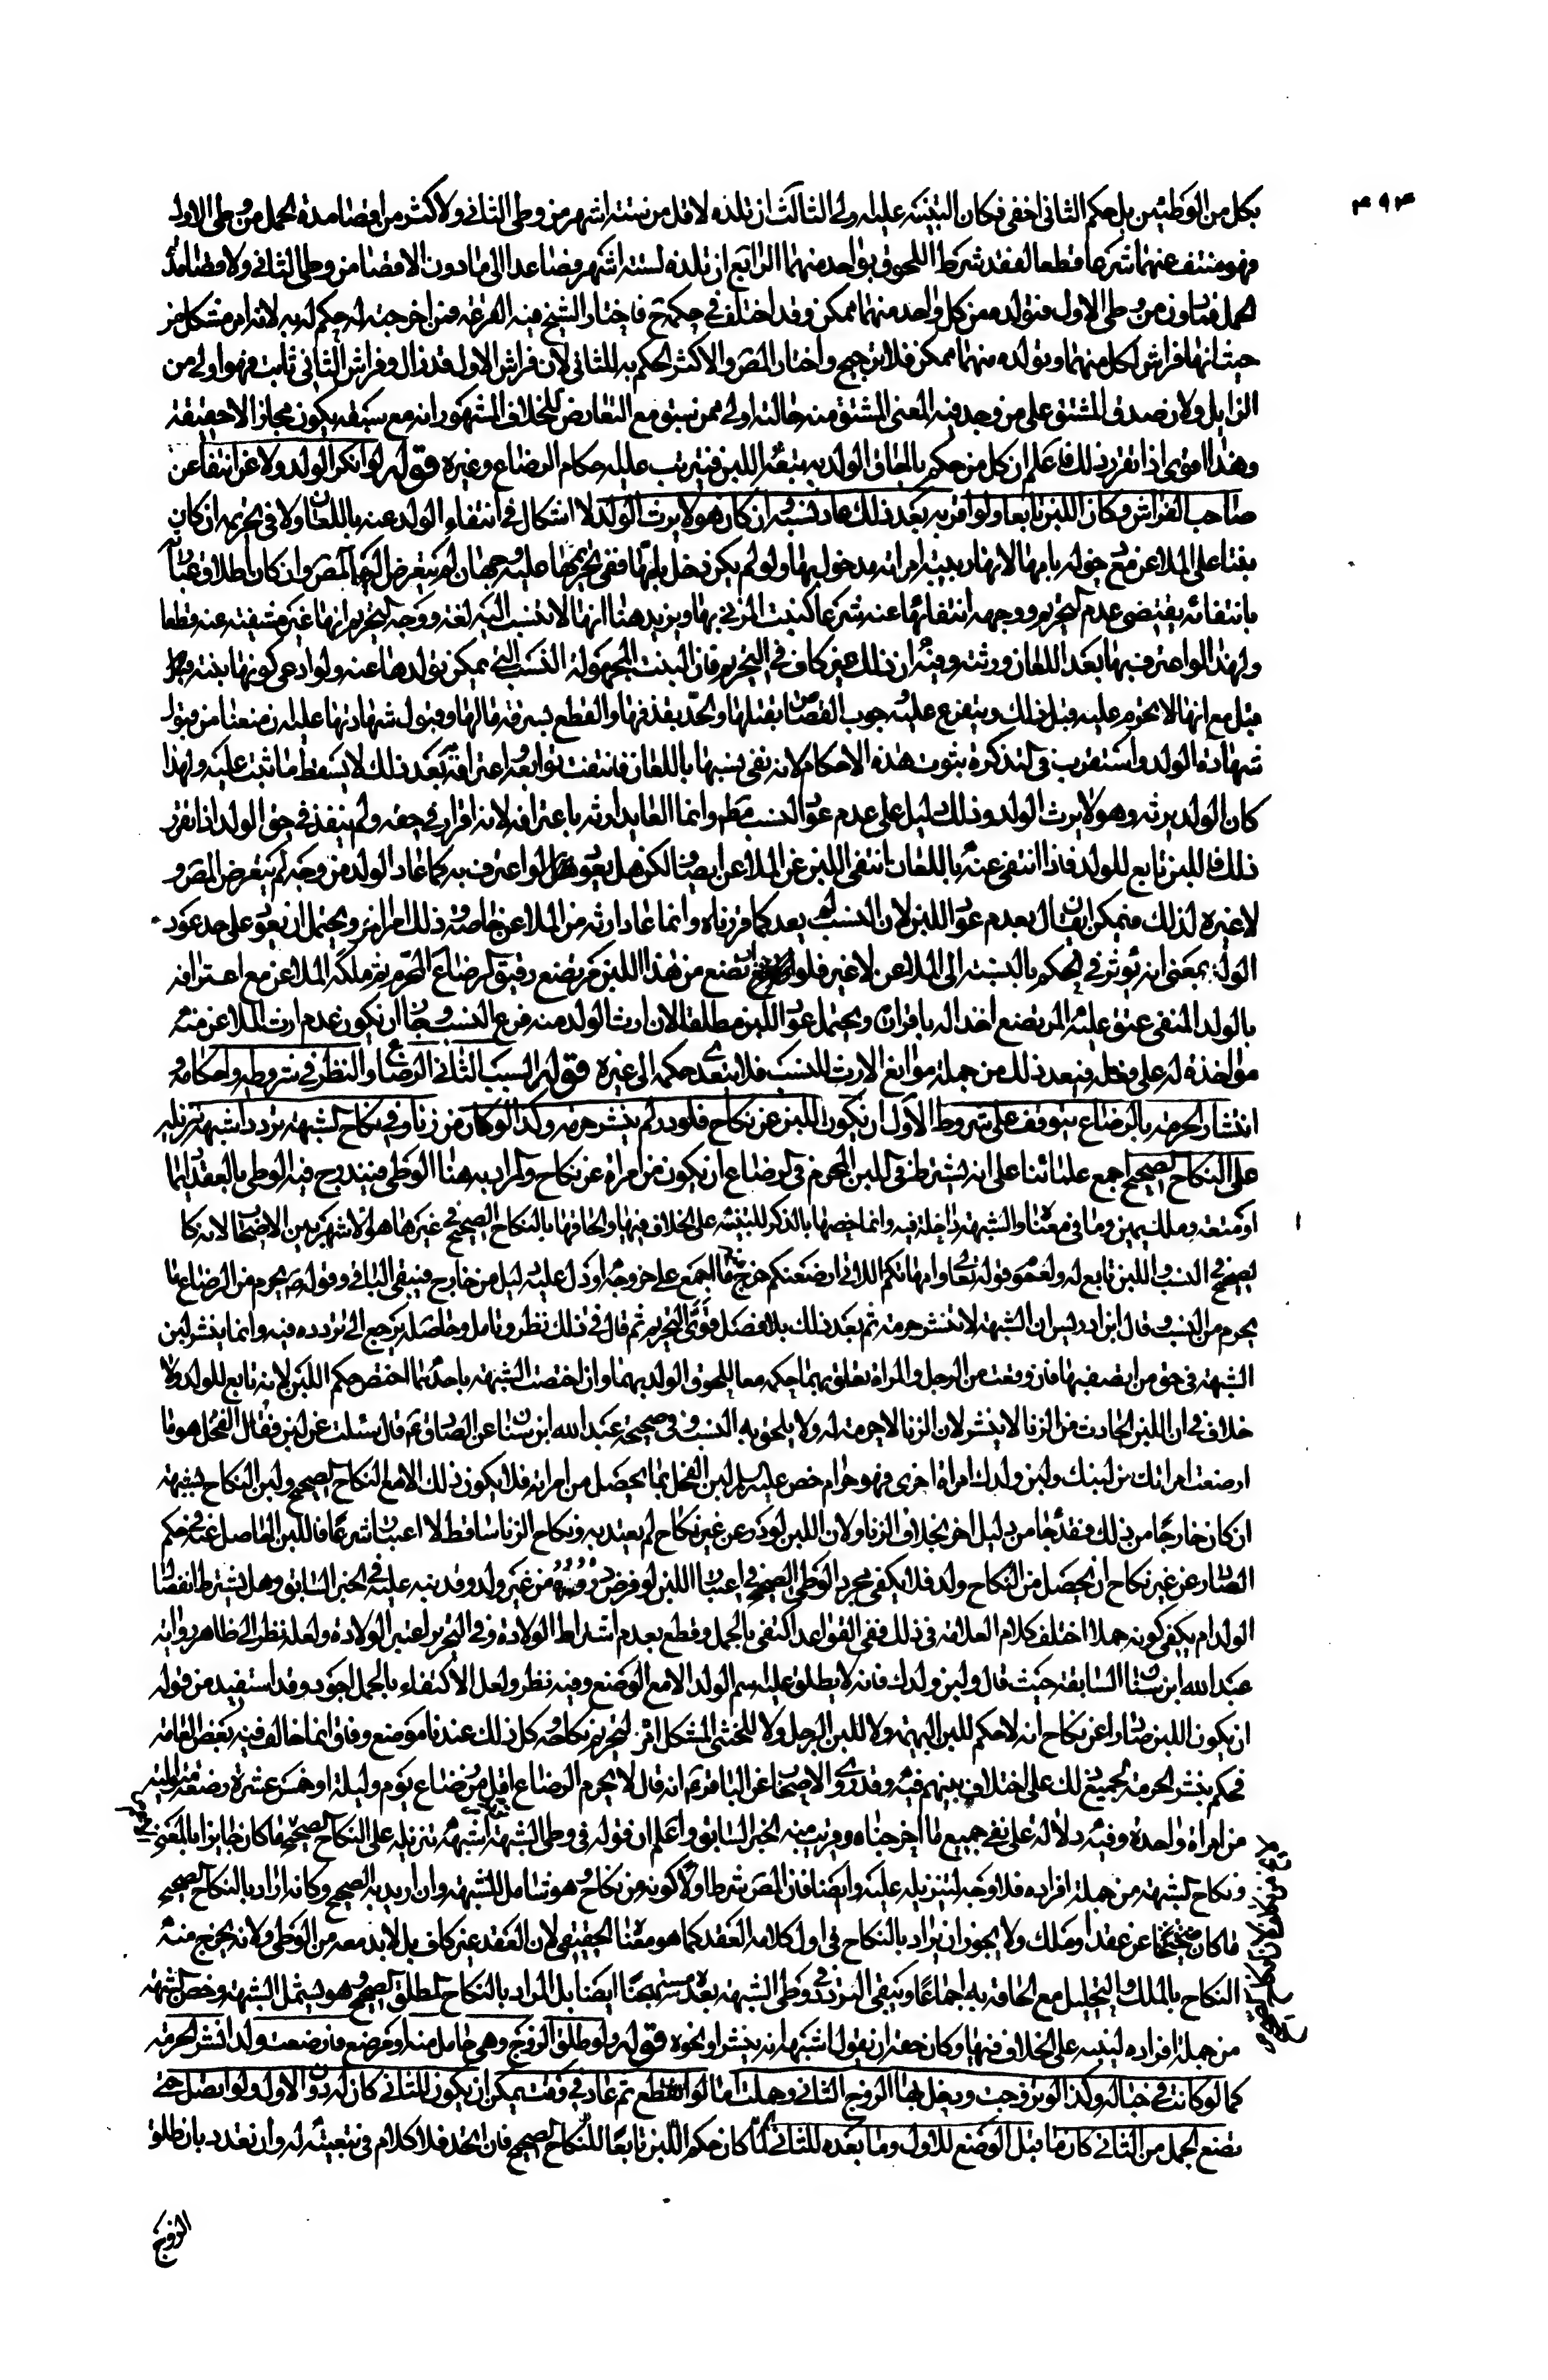 ۳۹۳
بكل من الوطئين بل حكم الثاني اخفى فكان التنبيه عليه اولى الثالث ان تلده لاقل من ستة اشهر من وطي الثاني ولاكثر من اقصا مدة الحمل من وطي الاول
فهو منتف عنهما شرعا قطعا لفقد شرط اللحوق بواحد منهما الرابع ان تلده لستة اشهر فصاعدا الى ما دون الاقصا من وطي الثاني ولاقصا مدة
الحمل فما دون من وطي الاول فتولده من كل واحد منهما ممكن وقد اختلف في حكمه ح فاختار الشيخ فيه القرعة فمن اخرجته له حكم له به لانه امر مشكل من
حيث انها فراش لكل منهما وتولده منهما ممكن فلا ترجيح واختار المص والاكثر الحكم به للثاني لان فراش الاول قد زال وفراش الثاني ثابت فهو اولى من
الزايل ولان صدق المشتق على من وجد فيه المعنى المشتق منه حالته اولى ممن سبق مع التعارض للخلاف المشهور انه مع سبقه يكون مجازا لا حقيقة
وهذا اقوى اذا تقرر ذلك فاعلم ان كل من حكم بالحاق الولد به يتبعه اللبن فيترتب عليه احكام الرضاع وغيره قوله لو انكر الولد ولاعن انتفا عن
صاحب الفراش وكان اللبن تابعا ولو اقر به بعد ذلك عاد نسبه وان كان هو لا يرث الولد لا اشكال في انتفاء الولد عنه باللعان ولا في تحريمه ان كان
بنتا على الملاعن مع دخوله بامها لانها ربيبة امراته مدخول بها ولو لم يكن دخل بامها ففي تحريمها عليه وجهان لم يتعرض لهما المص وان كان اطلاق عباراته
بانتفائه يقتضى عدم التحريم ووجهه انتفائها عنه شرعا كبنت المزني بها ويزيد هنا انها لا تنسب اليه لغة ووجه التحريم انها غير منتفية عنه قطعا
ولهذا لو اعترف بها بعد اللعان ورثته وفيه ان ذلك غير كاف في التحريم فان البنت المجهولة النسب التي يمكن تولدها عنه ولو ادعى كونها بنته
قبل مع انها لا تحرم عليه قبل ذلك ويتفرع عليه وجوب القصاص بقتلها والحد بقذفها والقطع بسرقة مالها وقبول شهادتها عليه ان منعنا من قبول
شهادة الولد واستقرب في التذكرة ثبوت هذه الاحكام لانه نفى نسبها باللعان فانتفت توابعه واعترافه بعد ذلك لا يسقط ما ثبت عليه ولهذا
كان الولد يرثه وهو لا يرث الولد وذلك دليل على عدم عود النسب مط وانما الفايد ارثه باعترافه لانه اقرار في حقه ولم ينفذ في حق الولد اذا تقرر
ذلك فاللبن تابع للولد فاذا انتفى عنه باللعان انتفى اللبن عن الملاعن ايضا لكن هل يعود لو اعترف به كما عاد الولد من وجه لم يتعرض المص و
لا غيره لذلك فيمكن ان يقال بعدم عود اللبن لان النسب لم يعد كما قررناه وانما عاد ارثه من الملاعن خاصة وذلك امر اخر ويحتمل ان يعود على حد عود
الولد بمعنى انه يؤثر في الحكم بالنسبة الى الملاعن لا غير فلو ارتضع من هذا اللبن مرتضع رقيق الرضاع المحرم ثم ملكه الملاعن مع اعترافه
بالولد المنفى عتق عليه المرتضع اخذا له باقراره ويحتمل عود اللبن مطلقا لان ارث الولد منه فرع النسب وجاز ان يكون عدم ارث الملاعن منه
مؤاخذة له على فعله فيعد ذلك من جملة موانع الارث للنسب فلا يتعدى حكمه الى غيره قوله السبب الثاني الرضاع والنظر في شروطه واحكامه
انتشار الحرمة بالرضاع يتوقف على شروط الاول ان يكون اللبن عن نكاح فلو در لم ينشر حرمة وكذا لو كان من زنا وفي نكاح الشبهة تردد اشبهه تنزيله
على النكاح الصحيح اجمع علمائنا على انه يشترط في اللبن المحرم في الرضاع ان يكون من امراة عن نكاح والمراد به هنا الوطي فيندرج فيه الوطي بالعقد دائما
او متعة وملك يمين وما في معناه والشبهة داخلة فيه وانما خصها بالذكر للتنبيه على الخلاف فيها والحاقها بالنكاح الصحيح في غيرها هو الاشهر بين الاصحاب لانه كا
لصحيح في النسب واللبن تابع له ولعموم قوله تعالى وامهاتكم اللاتي ارضعنكم خرج ما اجمع على خروجه او دل عليه دليل من خارج فيبقى الباقي وقوله ص يحرم من الرضاع ما
يحرم من النسب وقال ابن ادريس ان الشبهة لا تنشر حرمة ثم بعد ذلك بلا فصل قوى التحريم ثم قال في ذلك نظر وتامل وحاصله يرجع الى تردده فيه وانما ينشر لبن
الشبهة في حق من ايصف بها فان وقعت من الرجل والمراة تعلق بهما حكمه معا للحوق الولد بهما وان اختصت الشبهة باحدهما اختص حكم اللبن لانه تابع للولد ولا
خلاف في ان اللبن الحادث من الزنا لا ينشر لان الزنا لا حرمة له ولا يلحق به النسب وفي صحيحة عبد الله ابن سنان عن الصادق ع قال سئلت عن لبن الفحل فقال هو ما
ارضعت امراتك من لبنك ولبن ولدك امراة اخرى فهو حرام خص عليه السلم لبن الفحل بما يحصل من امراته فلا يكون ذلك الا مع النكاح الصحيح ولبن النكاح لشبهة
ان كان خارجا من ذلك فقد جاء من دليل اخر بخلاف الزنا ولان اللبن لو در عن غير نكاح لم يعتد به ونكاح الزنا ساقط الاعتبار شرعا فاللبن الحاصل عنه في حكم
الصادر عن غير نكاح ان يحصل من النكاح ولد فلا يكفى مجرد الوطي الصحيح في اعتبار اللبن لو فرض دروره من غير ولد وقد نبه عليه في الخبر السابق وهل يشترط انفصال
الولد ام يكفى كونه حملا اختلف كلام العلامة في ذلك ففي القواعد اكتفى بالحمل وقطع بعدم اشتراط الولادة وفي التحرير اعتبر الولادة ولعله نظر الى ظاهر رواية
عبد الله ابن سنان السابقة حيث قال ولبن ولدك فانه لا يطلق عليه اسم الولد الا مع الوضع وفيه نظر ولعل الاكتفاء بالحمل اجود وقد استفيد من قوله
ان يكون اللبن صادرا عن نكاح انه لا حكم للبن البهيمة ولا للبن الرجل ولا للخنثى المشكل امره لتحريم نكاحه كل ذلك عندنا موضع وفاق انما خالف فيه بعض العامة
فحكم بنشر الحرمة لجميع ذلك على اختلاف بينهم فيه وقد روى الاصحاب عن الباقر ع انه قال لا يحرم الرضاع اقل من رضاع يوم وليلة او خمس عشرة رضعة متوالية
من امراة واحدة وفيه دلالة على نفى جميع ما اخرجناه وقريب منه الخبر السابق واعلم ان قوله في وطي الشبهة اشبهه تنزيله على النكاح الصحيح ما كان جايزا بالمعنى
ونكاح الشبهة من جملة افراده فلا وجه لتنزيله عليه وايضا فان المص شرط اولا كونه من نكاح وهو شامل للشبهة وان اريد به الصحيح وكانه اراد بالنكاح الصحيح
ما كان عن عقد او ملك ولا يجوز ان يراد بالنكاح في اول كلامه العقد كما هو معناه الحقيقي لان العقد غير كاف بل لا بد معه من الوطي ولانه يخرج منه
النكاح بالملك والتحليل مع الحاقه به اجماعا ويبقى التردد في وطي الشبهة بعده مستهجنا ايضا بل المراد بالنكاح المطلق الصحيح وهو يشمل الشبهة وخص الشبهة
من جملة افراده لينبه على الخلاف فيها وكان حقه ان يقول اشبهها انه ينشر او نحوه قوله ولو طلق الزوج وهي حامل منه او مرضع فارضعت ولدا نشر الحرمة
كما لو كانت في حباله وكذا لو تزوجت ودخل بها الزوج الثاني وحملت اما لو انقطع ثم عاد في وقت يمكن ان يكون للثاني كان له دون الاول ولو اتصل حتى
تضع الحمل من الثاني كان ما قبل الوضع للاول وما بعده للثاني لما كان حكم اللبن تابعا للنكاح الصحيح فان اتحد فلا كلام في تبعيته له وان تعدد بان طلق
الزوج